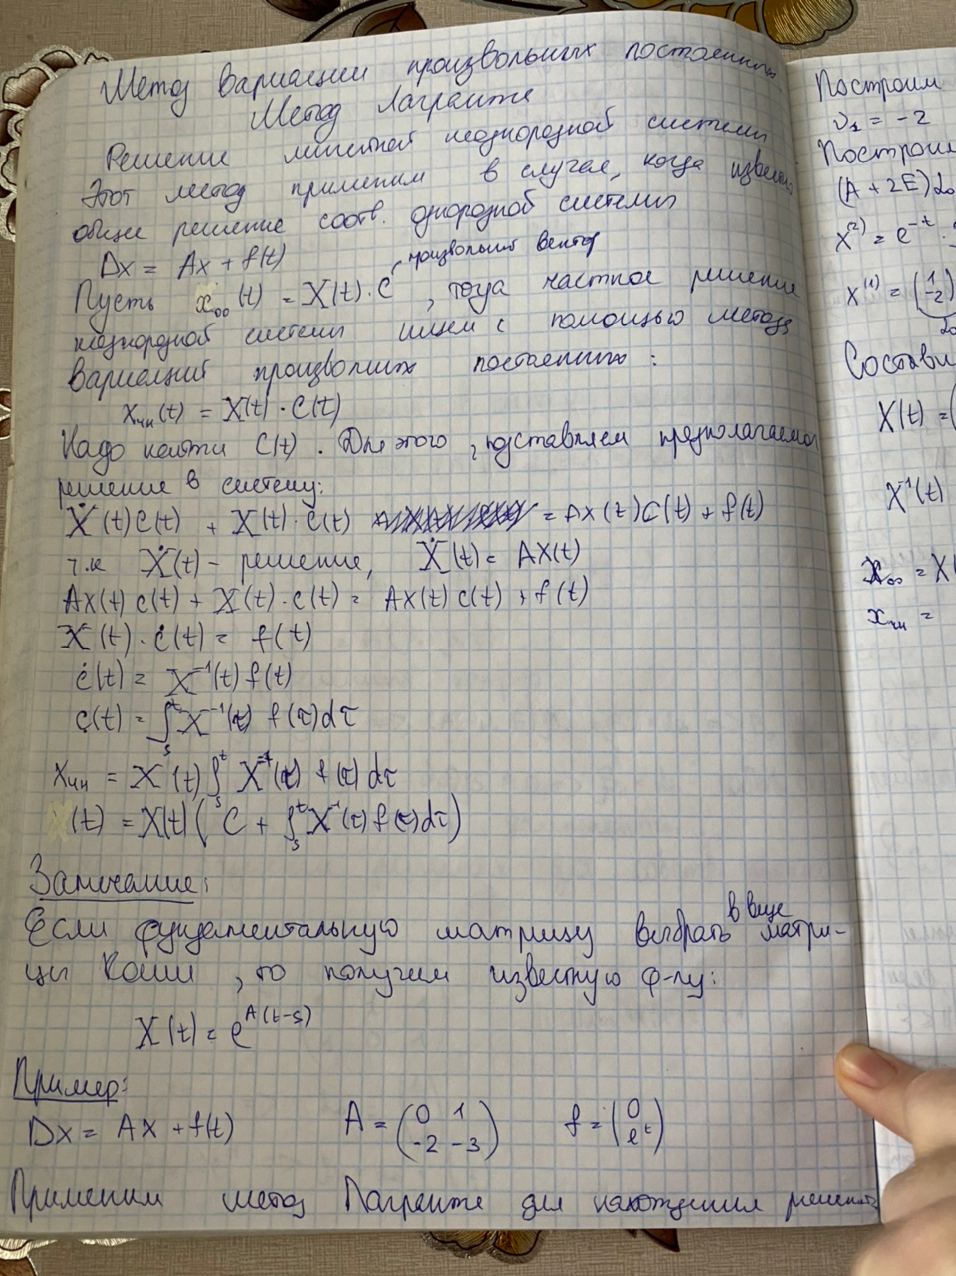 Метод вариации произвольных постоянных
Метод Лагранжа
Решение линейной неоднородной системы
Этот метод применим в случае, когда известно
общее решение соотв. однородной системы
Dx = Ax + f(t)
произвольный вектор
Пусть x₀₀(t) = X(t)·C, тогда частное решение
неоднородной системы ищем с помощью метода
вариаций произвольных постоянных:
xчн(t) = X(t)·C(t)
Надо найти C(t). Для этого, подставляем предполагаемое
решение в систему:
Ẋ(t)C(t) + X(t)·Ċ(t) = AX(t)C(t) + f(t)
т.к Ẋ(t) - решение, Ẋ(t) = AX(t)
AX(t)C(t) + X(t)·C(t) = AX(t)C(t) + f(t)
X(t)·Ċ(t) = f(t)
Ċ(t) = X⁻¹(t) f(t)
C(t) = ∫ₛᵗ X⁻¹(τ) f(τ)dτ
xчн = X(t) ∫ₛᵗ X⁻¹(τ) f(τ)dτ
X(t) = X(t)(C + ∫ₛᵗ X⁻¹(τ) f(τ)dτ)
Замечание:
Если фундаментальную матрицу выбрать в виде матри-
цы Коши, то получим известную ф-лу:
X(t) = e^{A(t-s)}
Пример:
Dx = Ax + f(t) A = (0 1 -2 -3) f = (0 eᵗ)
Применим метод Лагранжа для нахождения решения
Построим
ν₁ = -2
Построим
(A + 2E)
x⁽²⁾ = e⁻ᵗ ·
x⁽¹⁾ = (1 -2)
Состави
X(t) = (
X⁻¹(t)
x₀₀ = X(
xчн =